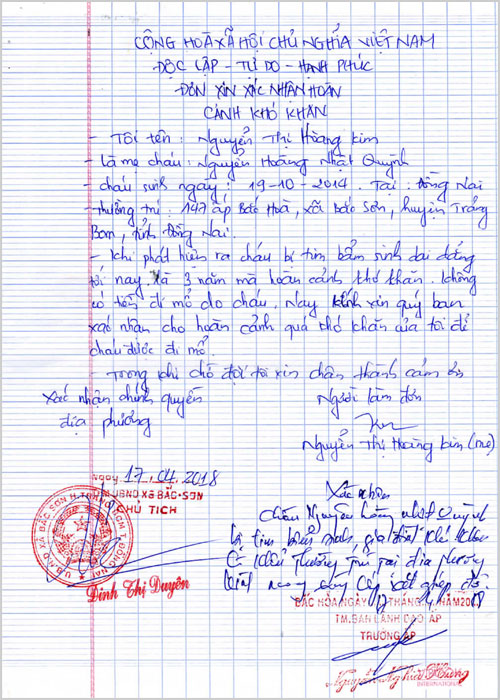 CỘNG HOÀ XÃ HỘI CHỦ NGHĨA VIỆT NAM
ĐỘC LẬP - TỰ DO - HẠNH PHÚC
ĐƠN XIN XÁC NHẬN HOÀN
CẢNH KHÓ KHĂN
- Tôi tên : Nguyễn Thị Hoàng Kim
- Là mẹ cháu : Nguyễn Hoàng Nhật Quỳnh
- cháu sinh ngày : 19-10-2014. Tại : Đồng Nai
- Thường trú : 147 ấp Bắc Hoà, xã Bắc Sơn, huyện Trảng
Bom, tỉnh Đồng Nai.
- Khi phát hiện ra cháu bị tim bẩm sinh dai dẳng
tới nay là 3 năm mà hoàn cảnh khó khăn. Không
có tiền đi mổ cho cháu. Nay kính xin quý ban
xác nhận cho hoàn cảnh quá khó khăn của tôi để
cháu được đi mổ.
- Trong khi chờ đợi tôi xin chân thành cảm ơn
Xác nhận chính quyền
địa phương
Người làm đơn
Nguyễn Thị Hoàng Kim (mẹ)
Ngày 17.04.2018
TM UBND XÃ BẮC SƠN
CHỦ TỊCH
Đinh Thị Duyên
Xác nhận
Cháu Nguyễn Hoàng Nhật Quỳnh
bị tim bẩm sinh, gia đình khó khăn
Có thường trú tại địa phương
BẮC HÒA NGÀY 17 THÁNG 4 NĂM 2018
TM.BAN LÃNH ĐẠO ẤP
TRƯỞNG ẤP